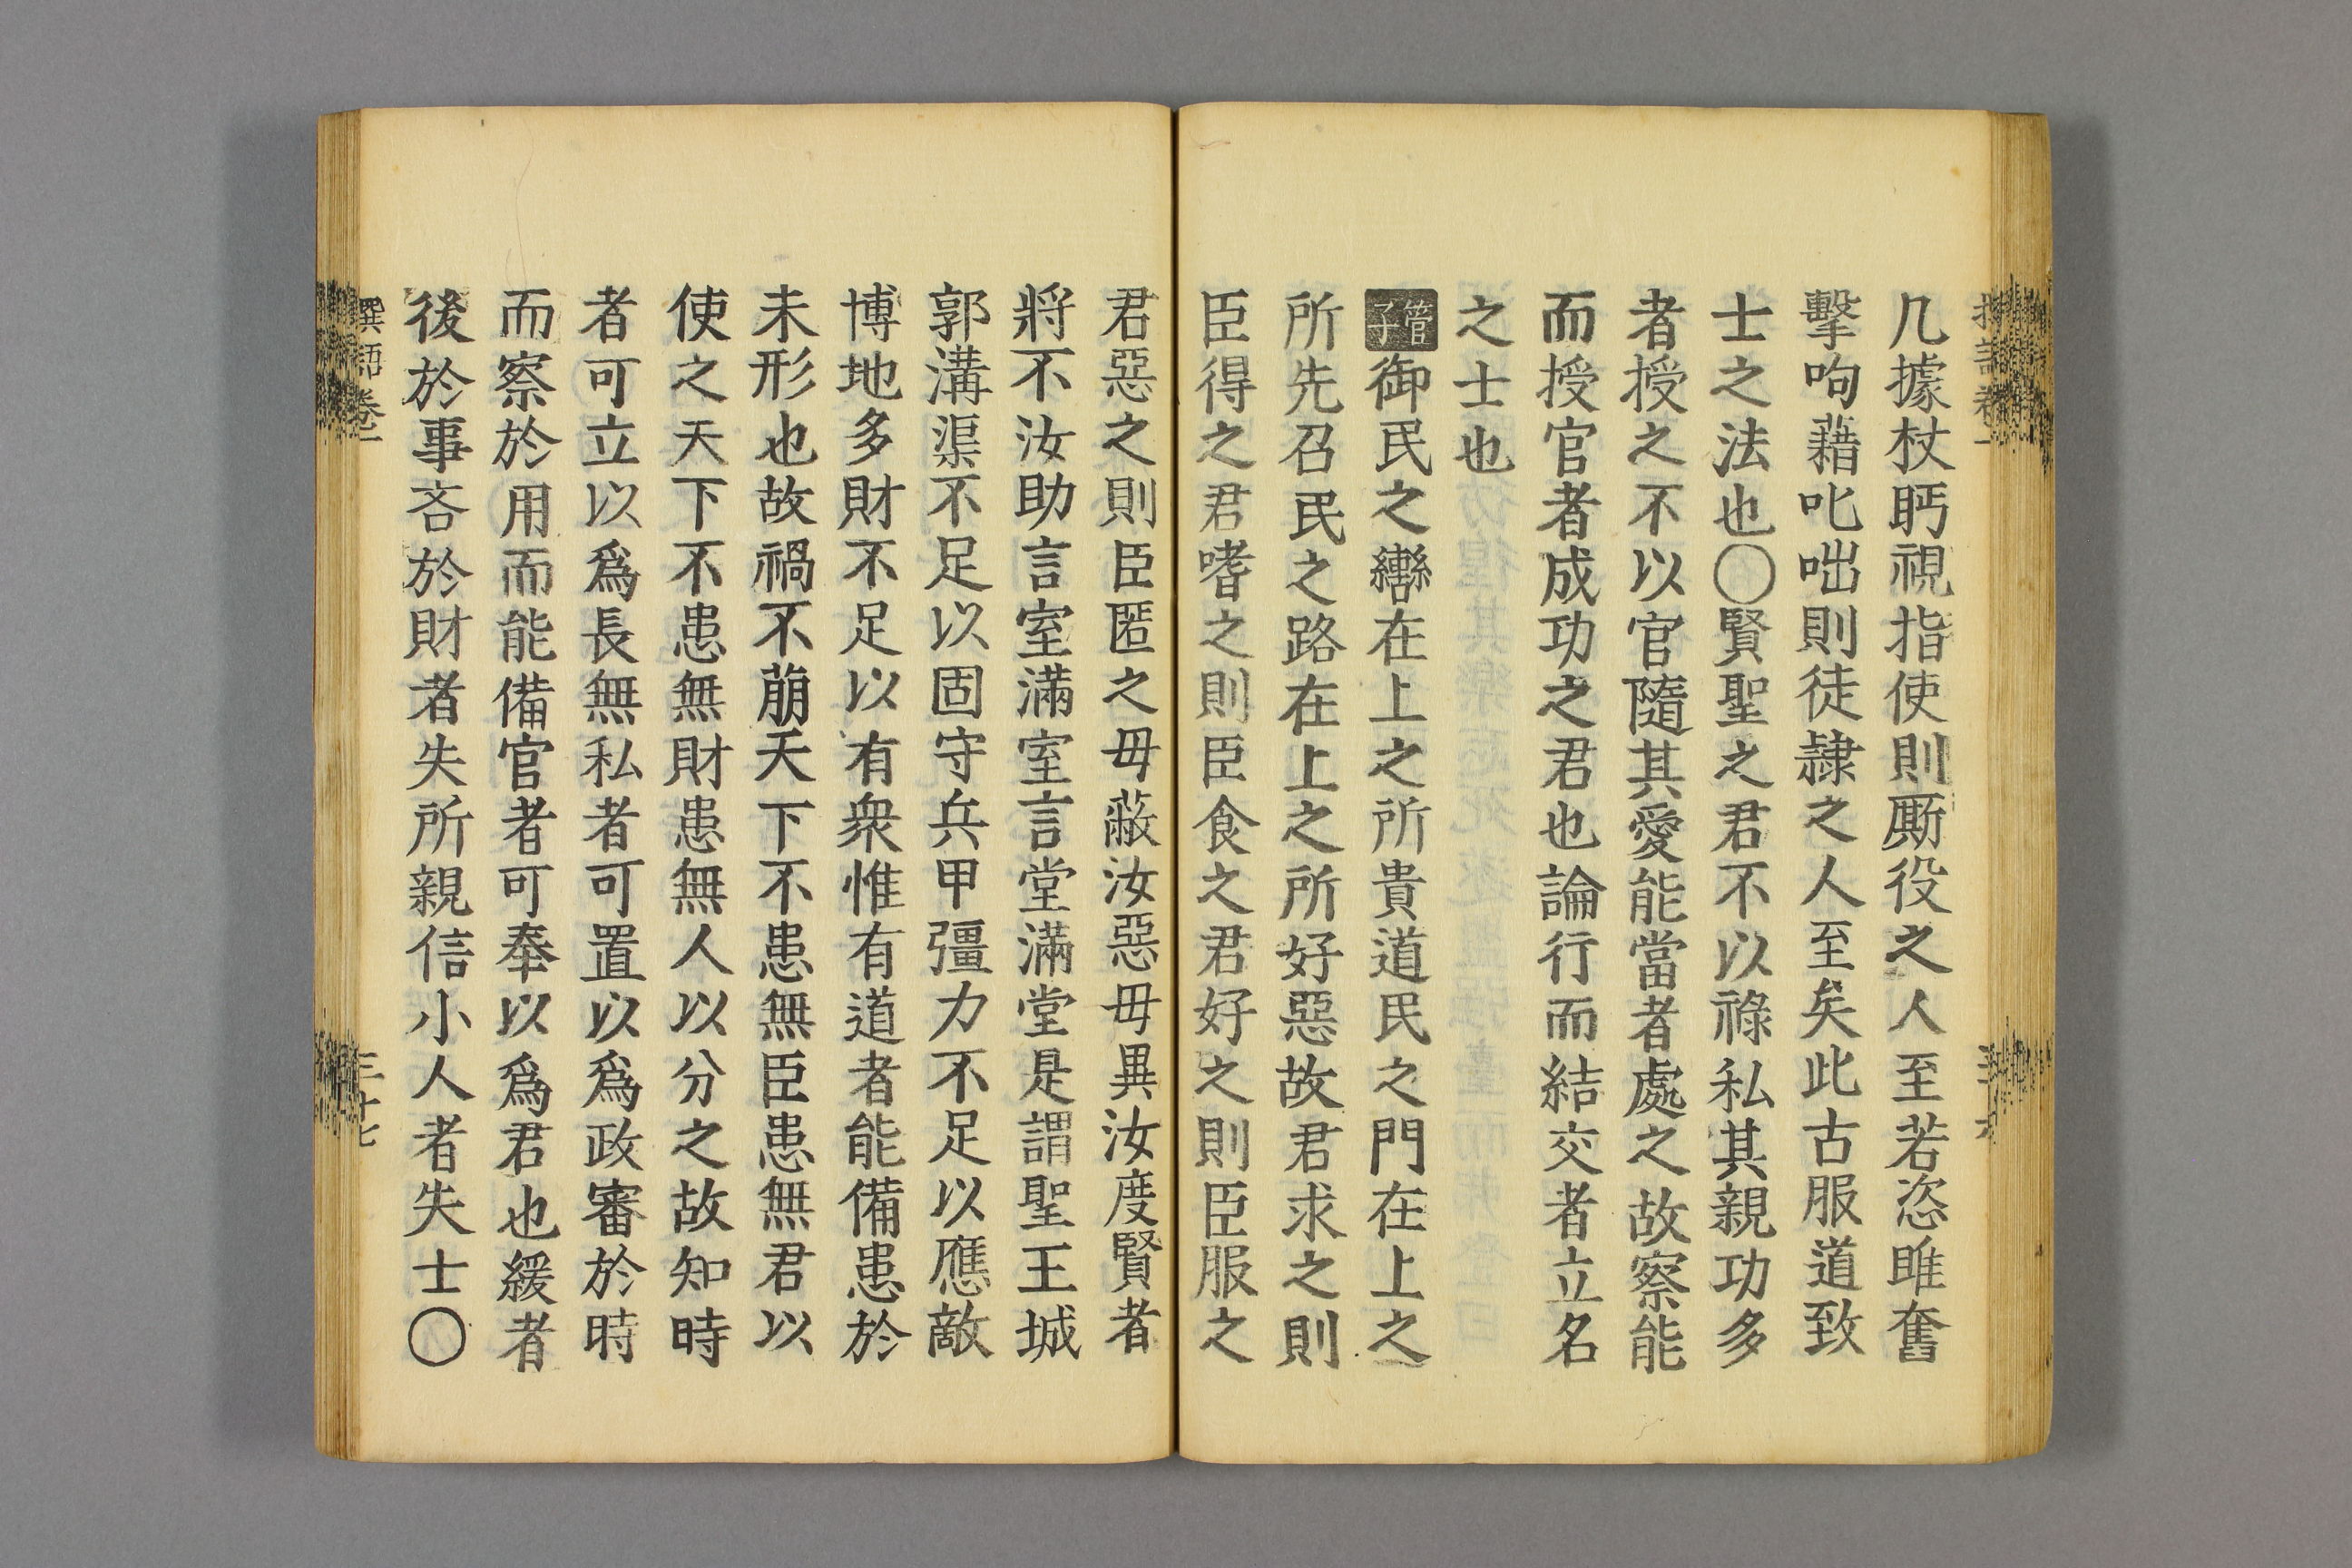 几據杖眄視指使則厮役之人至若恣睢奮
擊呴藉叱咄則徒隷之人至矣此古服道致
士之法也○賢聖之君不以祿私其親功多
者授之不以官隨其愛能當者處之故察能
而授官者成功之君也論行而結交者立名
之士也
管子御民之轡在上之所貴道民之門在上之
所先召民之路在上之所好惡故君求之則
臣得之君嗜之則臣食之君好之則臣服之
君惡之則臣匿之毋蔽汝惡毋異汝度賢者
將不汝助言室滿室言堂滿堂是謂聖王城
郭溝渠不足以固守兵甲彊力不足以應敵
博地多財不足以有衆惟有道者能備患於
未形也故禍不萠天下不患無臣患無君以
使之天下不患無財患無人以分之故知時
者可立以爲長無私者可置以爲政審於時
而察於用而能備官者可奉以爲君也緩者
後於事吝於財者失所親信小人者失士○
撰語卷一
三十七